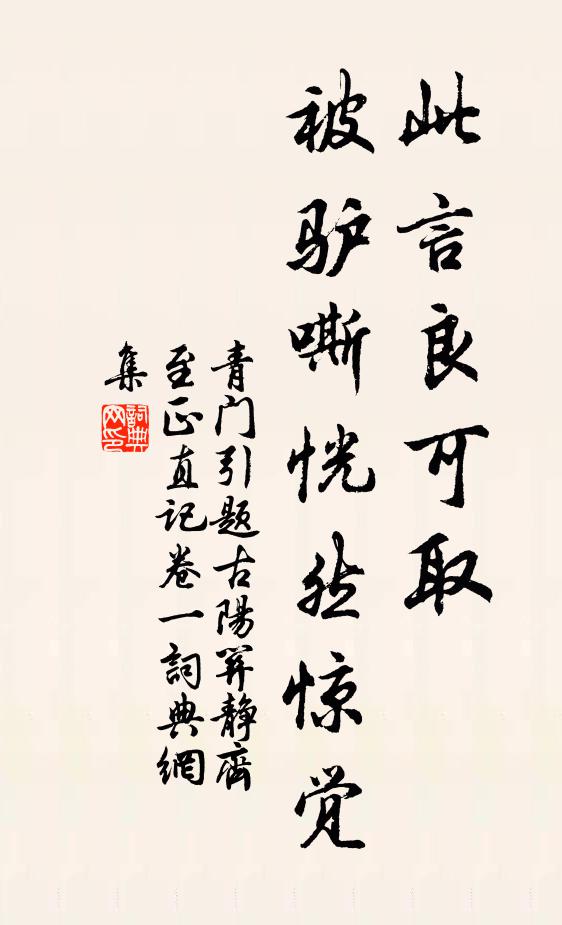 此言良可取
被驴嘶恍然惊觉
青门引题古陽關靜齋
至正直记卷一詞典網
集
詞典网印